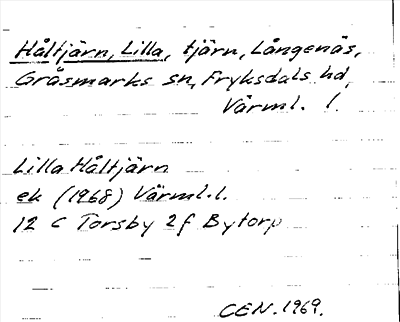 Håltjärn, Lilla, tjärn, Långenäs,
Gräsmarks sn, Fryksdals hd,
Värml. l.
Lilla Håltjärn
ek (1968) Värml.l.
12 C Torsby 2f Bytorp
CEN. 1969.